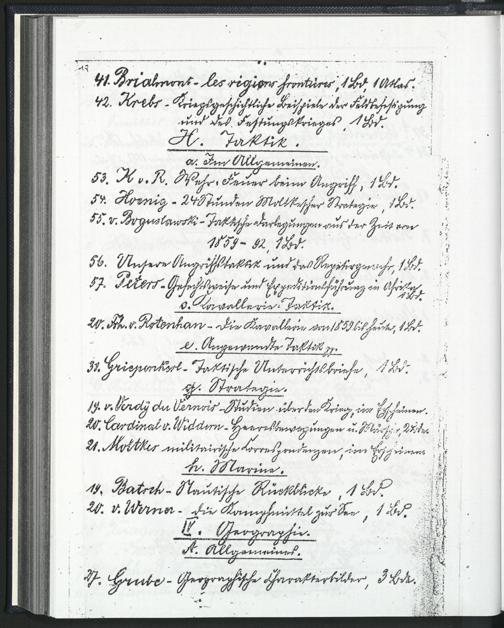 41. Brialmont - les régions frontières, 1 Bd. 1 Atlas.
42. Krebs - Kriegsgeschichtliche Beispiele der Feldbefestigung
und des Festungskrieges, 1 Bd.
H. Taktik.
a. Im Allgemeinen.
53. K. v. R. Wehr, Feuer beim Angriff, 1 Bd.
54. Hoenig - 24 Stunden Moltkescher Strategie, 1 Bd.
55. v. Boguslawski - Taktische Darlegungen aus der Zeit von
1859 - 92, 1 Bd.
56. Unsere Angriffstaktik und das Repetirgewehr, 1 Bd.
57. Peters - Gefechtsweise und Expeditionsführung in Afrika
1 Bd.
Kavallerie-Taktik.
20. Frh. v. Rotenhan - Die Kavallerie von 1859 bis heute, 1 Bd.
e. Angewandte Taktik
31. Griepenkerl - Taktische Unterrichtsbriefe, 1 Bd.
g. Strategie.
19. v. Verdy du Vernois - Studien über den Krieg, im Erscheinen.
20. Cardinal v. Widdern - Heeresbewegungen u. Märsche, 2 Bde.
21. Moltkes militairische Korrespondenzen, im Erscheinen
h. Marine.
19. Batsch - Nautische Rückblicke, 1 Bd.
20. v. Werner - Die Kampfmittel zur See, 1 Bd.
IV. Geographie.
A. Allgemeines.
27. Grube - Geographische Charakterbilder, 3 Bde.